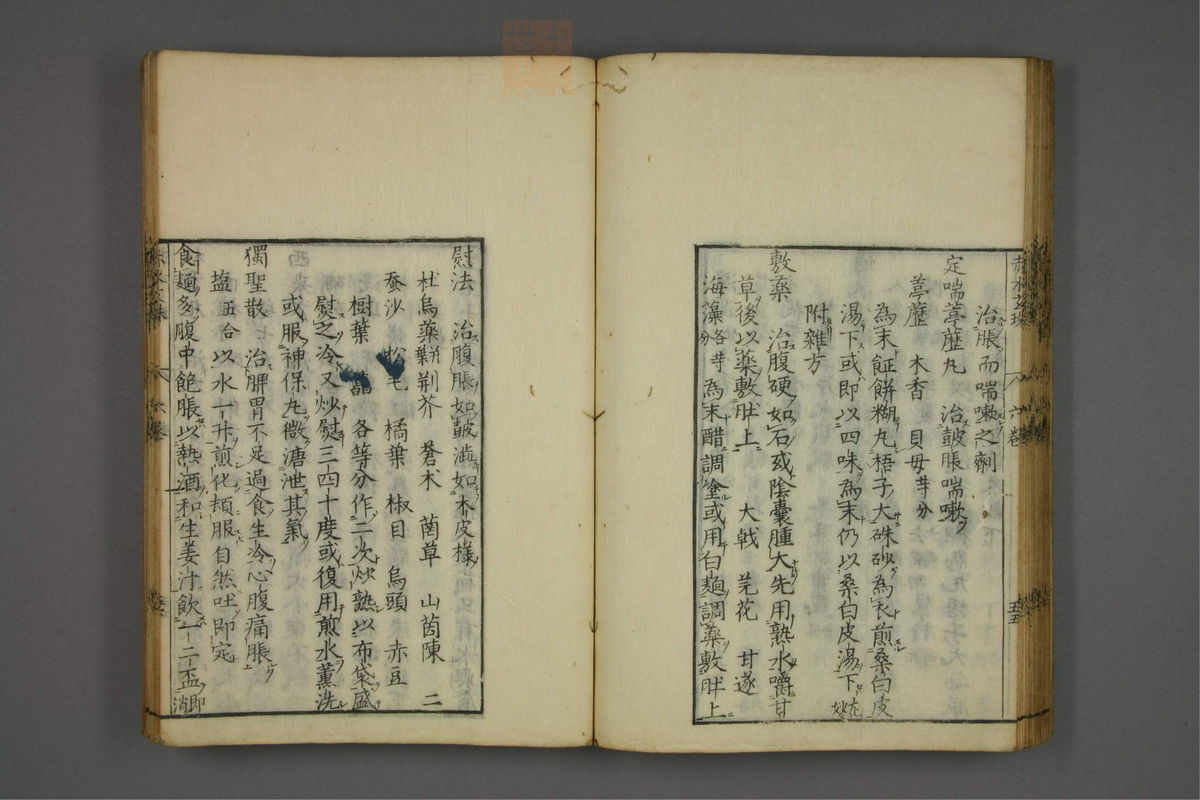 治脹而喘嗽之劑
定喘葶藶丸　治皷脹喘嗽
葶藶　木香　貝毋等分
為末餁餅糊丸梧子大硃砂為衣煎桑白皮
湯下或即以四味為末仍以桑白皮湯下尤妙
附雜方
敷藥　治腹硬如石或陰囊腫大先用熟水嚼甘
草後以藥敷肚上　大戟　芫花　甘遂
海藻各等分為末醋調塗或用白麵調藥敷肚上
熨法　治腹脹如皷如木皮樣
杜烏藥荆芥　蒼朮　茵草　山茵陳　二
蚕沙　松毛　橘葉　椒目　烏頭　赤豆
樹葉　各等分作二次炒熟以布袋盛
熨之冷又炒熨三四十度或復用煎水薰洗
或服神保丸微溏泄其氣
獨聖散　治脾胃不足過食生冷心腹痛脹
盐五合以水一升煎化頓服自然吐即定
食麵多腹中飽脹以熱酒和生姜汁飲一二盃即消